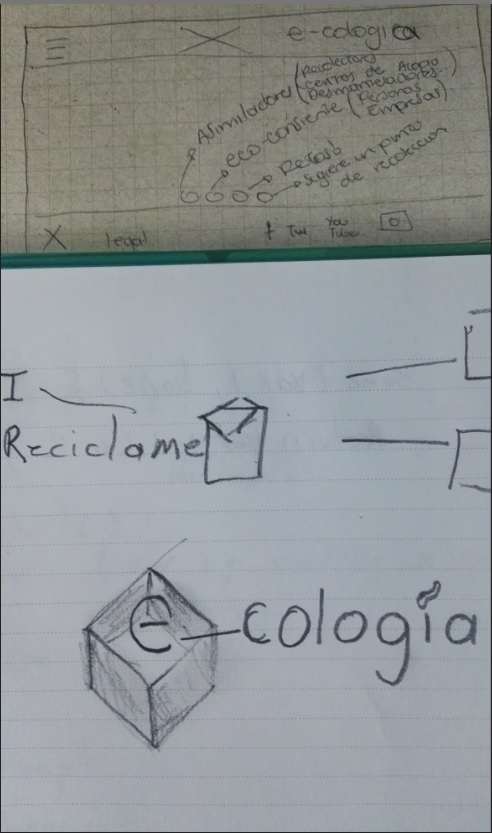 e-cologica
Asimiladores (Recolectores
Centros de Acopio
Desmanteladores..)
eco-consiente (Personas
Empresas)
Retos
sugiere un punto
de recoleccion
X legal f Tw You
Tube
I
Reciclame
e-cología